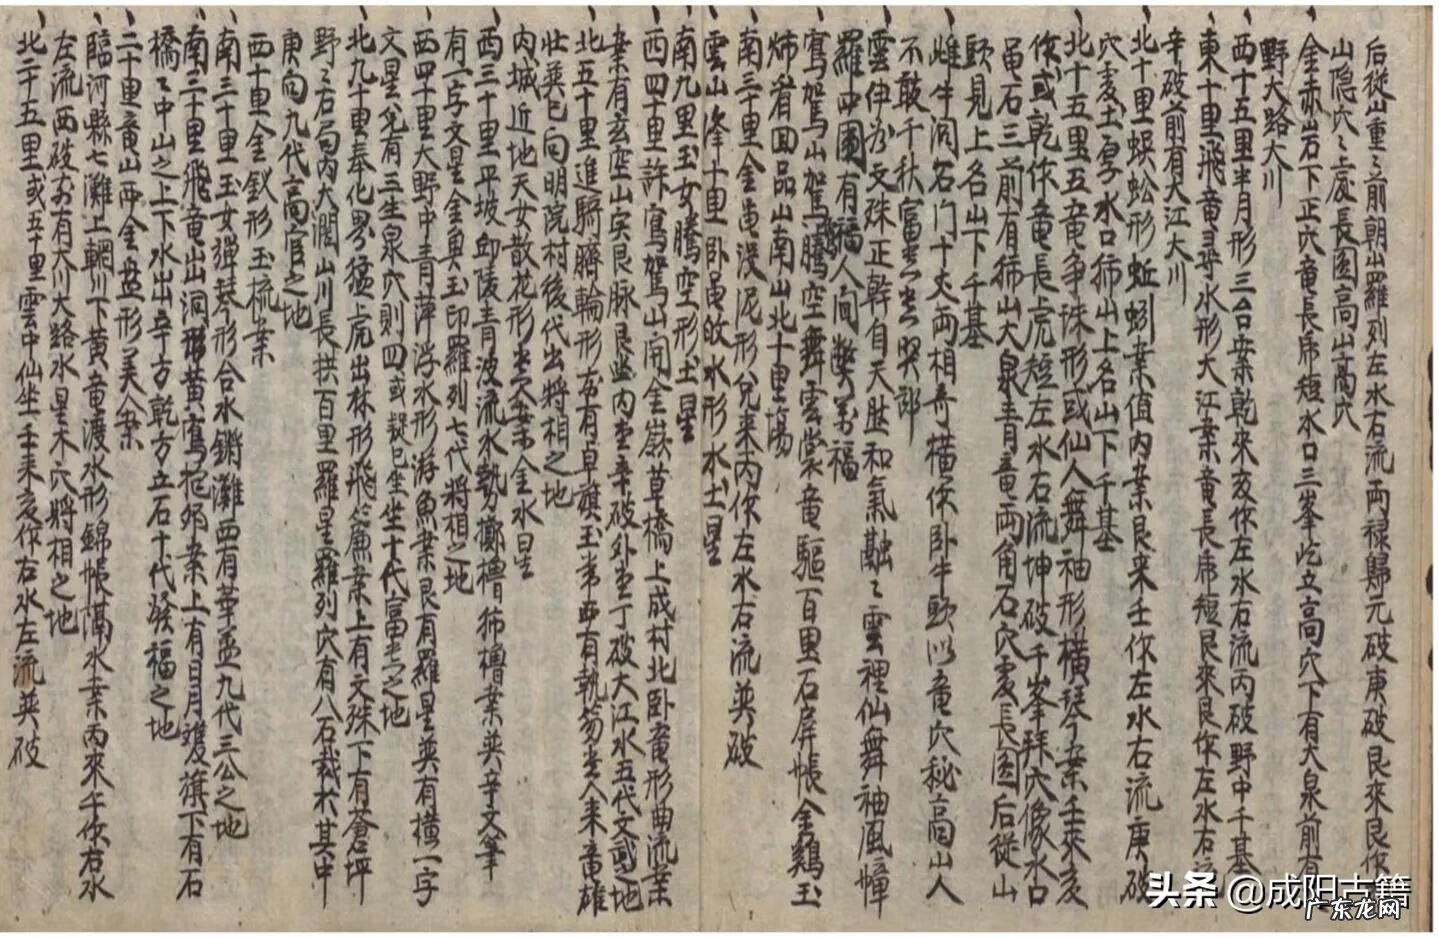 后從山重〻前朝山羅列左水右流丙禄歸元破庚破艮來艮作
山隐穴〻上處長圓高山高穴
金赤岩下正穴竜長虎短水口三峯屹立高穴下有大泉前有
野大路大川
西十五里半月形三台案乾來亥作左水右流丙破野中千基
東十里飛竜寻水形大江案竜長虎短艮來艮作左水右流
辛破前有大江大川
北十里蜈蚣形蚯蚓案值内案艮来壬作左水右流庚破
穴処土厚水口柿山上名山下千基
北十五里五竜争珠形或仙人舞袖形橫琴案壬來亥
作或乾作竜長虎短左水右流坤破千峯拜穴像水口
黾石三前有柿山大泉青竜両角石穴處長圓后從山
頭見上名山下千基
雌牛洞石门十丈两相奇橫作卧牛頭以竜穴秘高山人
不敢千秋富贵贵贤郎
雲伸分文殊正幹自天肚和氣融〻雲裡仙舞袖風幢
羅中圍有福人间弊万福
鴛鴦山鴛鴦騰空舞雲裳竜驅百里石屏帳金鷄玉
柿肴回品山南山北十里塲
南三十里金黾沒泥形兌来丙作左水右流巽破
雲山峰十里卧黾放水形水土星
南九里玉女騰空形土星
西四十里許鴛鴦山開金嶺草橋上成村北卧竜形曲流案
案有玄空山实艮脉艮坐内堂辛破外堂丁破大江水五代文武之地
北五十里進騎臍輪形左有卓旗玉帯西有執笏贵人来竜雄
壯巽巳向明院村後代出將相之地
内城近地天女散花形贵人案金水星
西三十里平坡卸陵青波流水勢擲櫓柿櫓案巽辛文筆
有一字文星金奐玉印羅列七代將相之地
西四十里大野中青萍浮水形游魚案艮有羅星巽有橫一字
文星兌有三生泉穴則四或疑已坐坐十代富贵之地
北九十里奉化界猛虎出林形飛簾案上有文殊下有蒼坪
野〻石局内大濶山川長拱百里羅星羅列穴有八石裁於其中
庚向九代高官之地
西十里金釵形玉梳案
南三十里玉女彈琴形合水鏘灘西有華盖九代三公之地
南三十里飛竜出洞形黄鹰抱卵案上有日月還旗下有石
橋〻中山之上下水出辛方乾方立石十代發福之地
二十里竜山两金盘形美人案
臨河縣七灘上輞川下黄竜渡水形錦帳隔水案丙來午作右水
左流西破前有大川大路水星木穴將相之地
北二十五里或五十里雲中仙坐壬来亥作右水左流巽破
头条 @成阳古籍
广东龙网